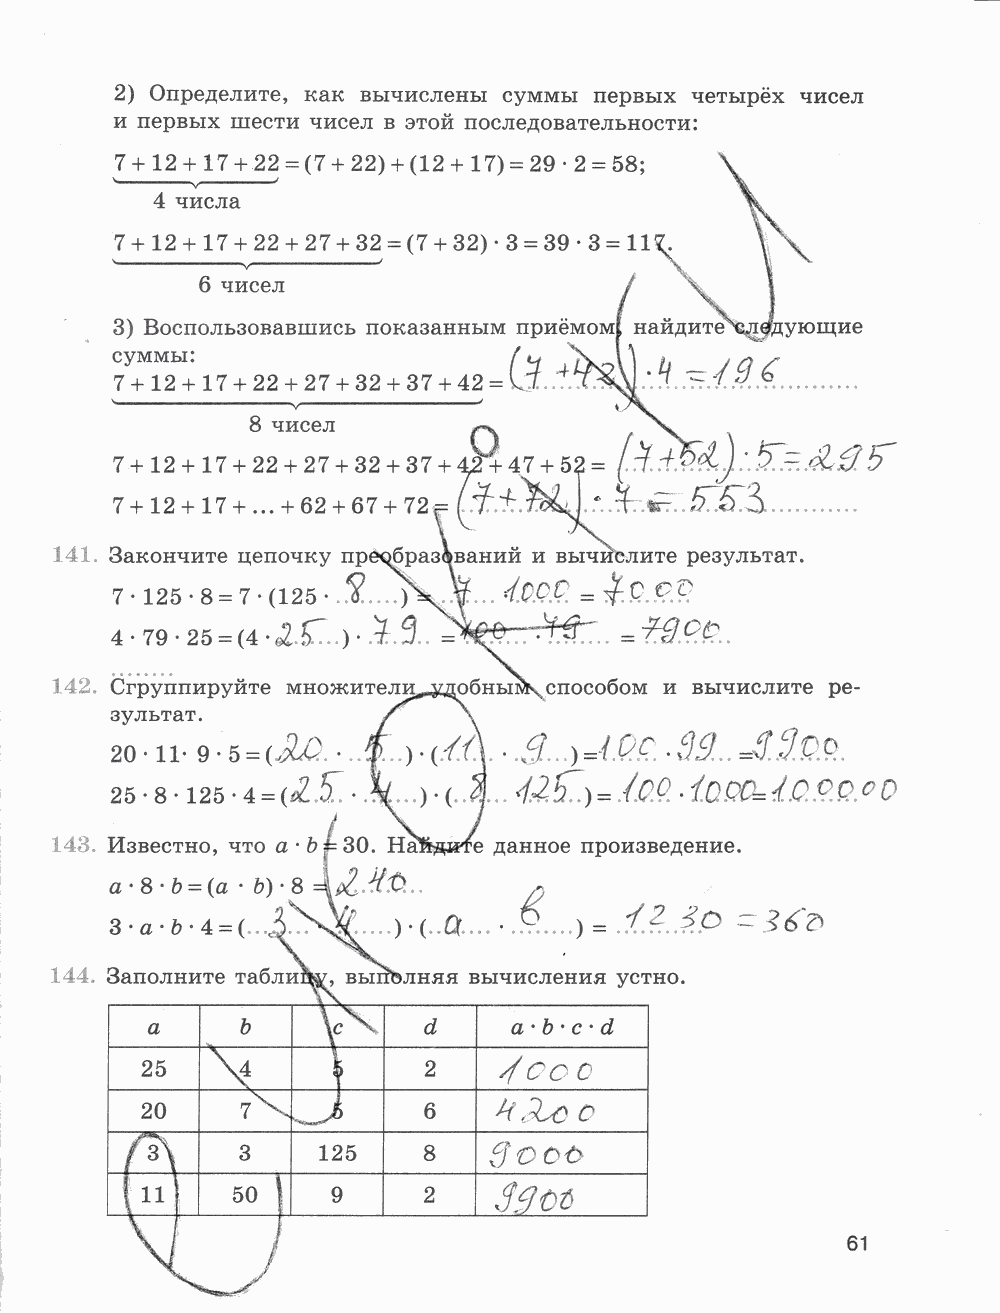 2) Определите, как вычислены суммы первых четырёх чисел
и первых шести чисел в этой последовательности:
7 + 12 + 17 + 22 = (7 + 22) + (12 + 17) = 29 · 2 = 58;
4 числа
7 + 12 + 17 + 22 + 27 + 32 = (7 + 32) · 3 = 39 · 3 = 117.
6 чисел
3) Воспользовавшись показанным приёмом, найдите следующие
суммы:
7 + 12 + 17 + 22 + 27 + 32 + 37 + 42 = (7 + 42) · 4 = 196
8 чисел
7 + 12 + 17 + 22 + 27 + 32 + 37 + 42 + 47 + 52 = (7 + 52) · 5 = 295
7 + 12 + 17 + ... + 62 + 67 + 72 = (7 + 72) · 7 = 553
141. Закончите цепочку преобразований и вычислите результат.
7 · 125 · 8 = 7 · (125 · 8) = 7 1000 = 7000
4 · 79 · 25 = (4 · 25) · 79 = 100 · 79 = 7900
142. Сгруппируйте множители удобным способом и вычислите ре-
зультат.
20 · 11 · 9 · 5 = (20 · 5) · (11 · 9) = 100 · 99 = 9900
25 · 8 · 125 · 4 = (25 · 4) · (8 125) = 100 · 1000 = 100000
143. Известно, что a · b = 30. Найдите данное произведение.
a · 8 · b = (a · b) · 8 = 240
3 · a · b · 4 = (3 · 4) · (a · b) = 12 30 = 360
144. Заполните таблицу, выполняя вычисления устно.
a b c d a · b · c · d
25 4 5 2 1000
20 7 5 6 4200
3 3 125 8 9000
11 50 9 2 9900
61